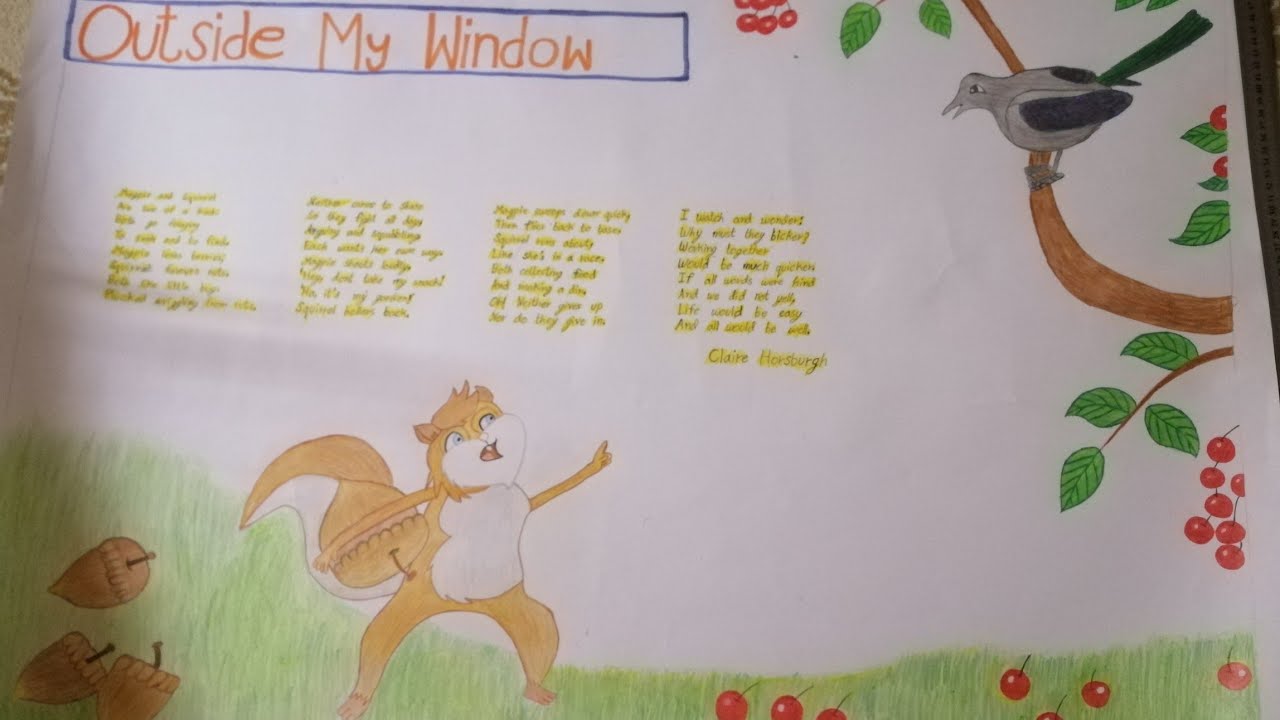 Outside My Window
Magpie and Squirrel
Are two of a kind.
Both go
To seek and to find.
Magpie likes berries,
Squirrel favours nuts.
Both are little
wriggling from
Neither cares to share
So they fight all day.
Arguing and squabbling
Each wants her own way.
Magpie shouts loudly,
dont take my snack!
No, it's my
Squirrel back.
Magpie sweeps down quickly
Then flies back to base.
Squirrel runs about,
Like she's in a race.
Both collecting food
And making a din.
Oh! Neither gives up
Nor do they give in.
I watch and wonder:
Why must they bicker?
Working together
Would be much quicker.
If all words were kind
And we did not yell,
Life would be easy
And all would be well.
Claire Horsburgh